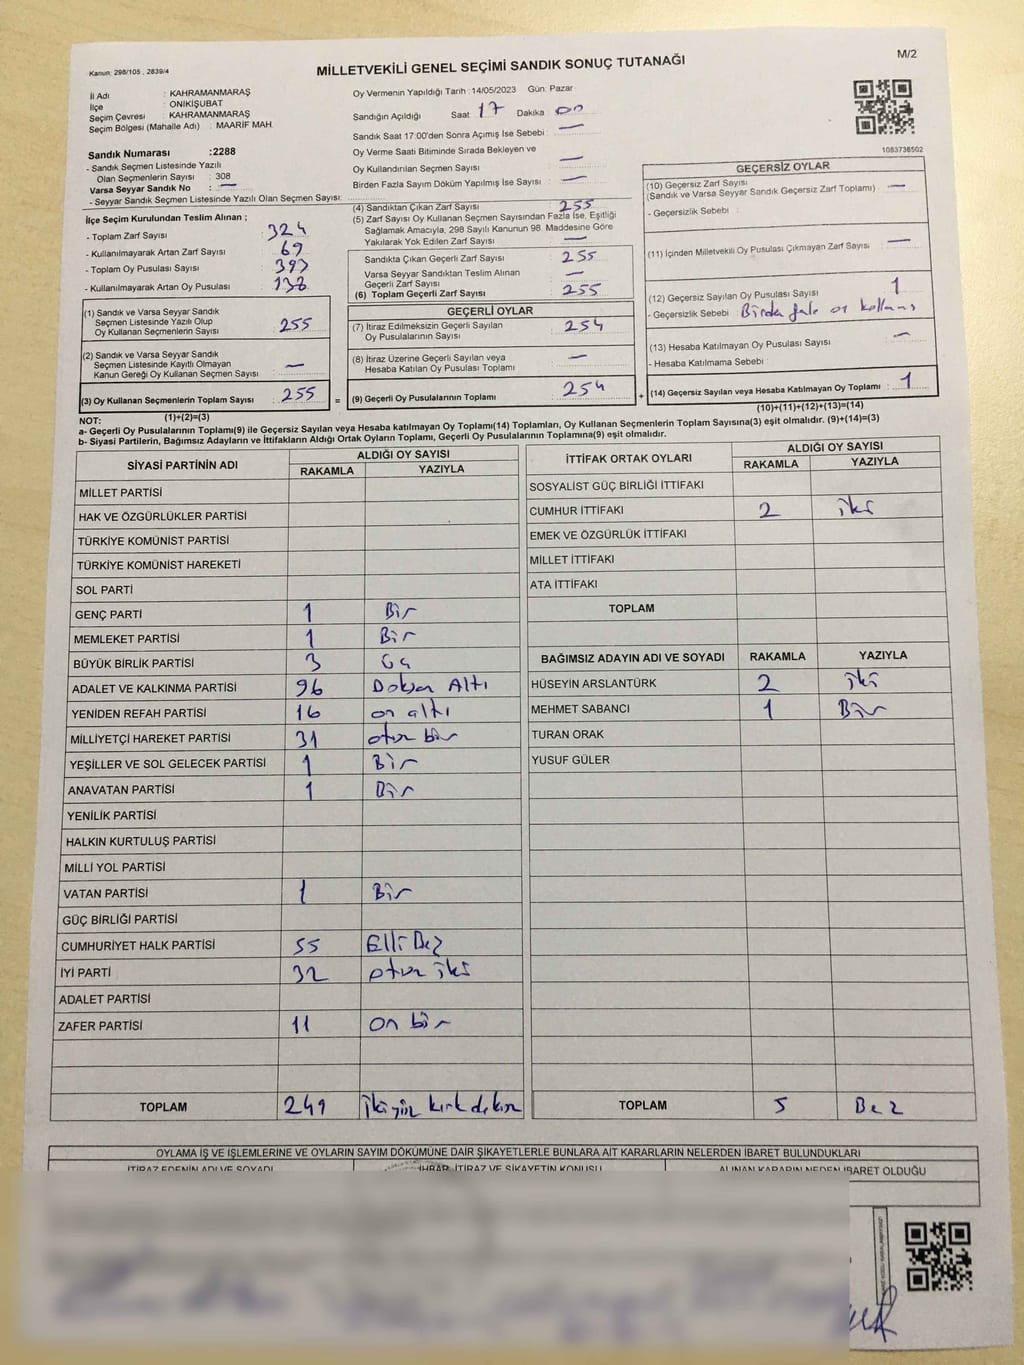 M/2
Kanun: 298/105 , 2839/4
MİLLETVEKİLİ GENEL SEÇİMİ SANDIK SONUÇ TUTANAĞI
İl Adı : KAHRAMANMARAŞ
İlçe : ONİKİŞUBAT
Seçim Çevresi : KAHRAMANMARAŞ
Seçim Bölgesi (Mahalle Adı) : MAARİF MAH.
Sandık Numarası :2288
- Sandık Seçmen Listesinde Yazılı
Olan Seçmenlerin Sayısı : 308
Varsa Seyyar Sandık No : —
- Seyyar Sandık Seçmen Listesinde Yazılı Olan Seçmen Sayısı:
İlçe Seçim Kurulundan Teslim Alınan ;
- Toplam Zarf Sayısı : 324
- Kullanılmayarak Artan Zarf Sayısı : 69
- Toplam Oy Pusulası Sayısı : 393
- Kullanılmayarak Artan Oy Pusulası : 138
(1) Sandık ve Varsa Seyyar Sandık
Seçmen Listesinde Yazılı Olup
Oy Kullanan Seçmenlerin Sayısı 255
(2) Sandık ve Varsa Seyyar Sandık
Seçmen Listesinde Kayıtlı Olmayan
Kanun Gereği Oy Kullanan Seçmen Sayısı —
(3) Oy Kullanan Seçmenlerin Toplam Sayısı 255
(1)+(2)=(3)
Oy Vermenin Yapıldığı Tarih :14/05/2023 Gün: Pazar
Sandığın Açıldığı Saat 17 Dakika 00
Sandık Saat 17:00'den Sonra Açımış İse Sebebi : —
Oy Verme Saati Bitiminde Sırada Bekleyen ve
Oy Kullandırılan Seçmen Sayısı —
Birden Fazla Sayım Döküm Yapılmış İse Sayısı —
(4) Sandıktan Çıkan Zarf Sayısı 255
(5) Zarf Sayısı Oy Kullanan Seçmen Sayısından Fazla İse, Eşitliği
Sağlamak Amacıyla, 298 Sayılı Kanunun 98. Maddesine Göre
Yakılarak Yok Edilen Zarf Sayısı —
Sandıkta Çıkan Geçerli Zarf Sayısı 255
Varsa Seyyar Sandıktan Teslim Alınan
Geçerli Zarf Sayısı —
(6) Toplam Geçerli Zarf Sayısı 255
GEÇERLİ OYLAR
(7) İtiraz Edilmeksizin Geçerli Sayılan
Oy Pusulalarının Sayısı 254
(8) İtiraz Üzerine Geçerli Sayılan veya
Hesaba Katılan Oy Pusulası Toplamı —
= (9) Geçerli Oy Pusulalarının Toplamı 254
1083738502
GEÇERSİZ OYLAR
(10) Geçersiz Zarf Sayısı
(Sandık ve Varsa Seyyar Sandık Geçersiz Zarf Toplamı) —
- Geçersizlik Sebebi :
(11) İçinden Milletvekili Oy Pusulası Çıkmayan Zarf Sayısı —
(12) Geçersiz Sayılan Oy Pusulası Sayısı 1
- Geçersizlik Sebebi
(13) Hesaba Katılmayan Oy Pusulası Sayısı —
- Hesaba Katılmama Sebebi :
+ (14) Geçersiz Sayılan veya Hesaba Katılmayan Oy Toplamı 1
(10)+(11)+(12)+(13)=(14)
NOT:
a- Geçerli Oy Pusulalarının Toplamı(9) ile Geçersiz Sayılan veya Hesaba katılmayan Oy Toplamı(14) Toplamları, Oy Kullanan Seçmenlerin Toplam Sayısına(3) eşit olmalıdır. (9)+(14)=(3)
b- Siyasi Partilerin, Bağımsız Adayların ve İttifakların Aldığı Ortak Oyların Toplamı, Geçerli Oy Pusulalarının Toplamına(9) eşit olmalıdır.
SİYASİ PARTİNİN ADI ALDIĞI OY SAYISI
RAKAMLA YAZIYLA
MİLLET PARTİSİ
HAK VE ÖZGÜRLÜKLER PARTİSİ
TÜRKİYE KOMÜNİST PARTİSİ
TÜRKİYE KOMÜNİST HAREKETİ
SOL PARTİ
GENÇ PARTİ 1 Bir
MEMLEKET PARTİSİ 1 Bir
BÜYÜK BİRLİK PARTİSİ 3 Üç
ADALET VE KALKINMA PARTİSİ 96 Doksan Altı
YENİDEN REFAH PARTİSİ 16 on altı
MİLLİYETÇİ HAREKET PARTİSİ 31 otuz bir
YEŞİLLER VE SOL GELECEK PARTİSİ 1 Bir
ANAVATAN PARTİSİ 1 Bir
YENİLİK PARTİSİ
HALKIN KURTULUŞ PARTİSİ
MİLLİ YOL PARTİSİ
VATAN PARTİSİ 1 Bir
GÜÇ BİRLİĞİ PARTİSİ
CUMHURİYET HALK PARTİSİ 55 Elli Beş
İYİ PARTİ 32 otuz iki
ADALET PARTİSİ
ZAFER PARTİSİ 11 on bir
TOPLAM 249 İkiyüz kırk dokuz
İTTİFAK ORTAK OYLARI ALDIĞI OY SAYISI
RAKAMLA YAZIYLA
SOSYALİST GÜÇ BİRLİĞİ İTTİFAKI
CUMHUR İTTİFAKI 2 iki
EMEK VE ÖZGÜRLÜK İTTİFAKI
MİLLET İTTİFAKI
ATA İTTİFAKI
TOPLAM
BAĞIMSIZ ADAYIN ADI VE SOYADI RAKAMLA YAZIYLA
HÜSEYİN ARSLANTÜRK 2 iki
MEHMET SABANCI 1 Bir
TURAN ORAK
YUSUF GÜLER
TOPLAM 5 Beş
OYLAMA İŞ VE İŞLEMLERİNE VE OYLARIN SAYIM DÖKÜMÜNE DAİR ŞİKAYETLERLE BUNLARA AİT KARARLARIN NELERDEN İBARET BULUNDUKLARI
İTİRAZ EDENİN ADI VE SOYADI İHBAR, İTİRAZ VE ŞİKAYETİN KONUSU ALINAN KARARIN NEDEN İBARET OLDUĞU